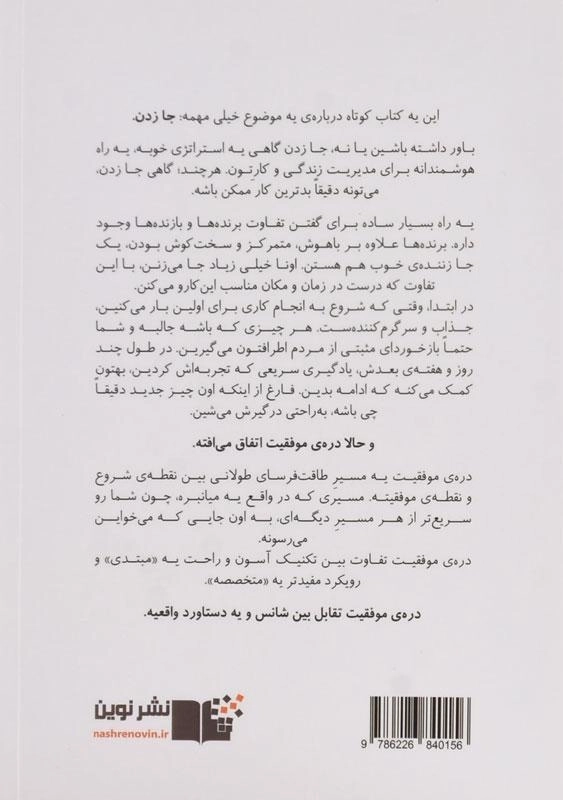 این یه کتاب کوتاه درباره‌ی یه موضوع خیلی مهمه: جا زدن.
باور داشته باشین یا نه، جا زدن گاهی یه استراتژی خوبه، یه راه
هوشمندانه برای مدیریت زندگی و کارتون. هرچند؛ گاهی جا زدن،
می‌تونه دقیقاً بدترین کار ممکن باشه.
یه راه بسیار ساده برای گفتن تفاوت برنده‌ها و بازنده‌ها وجود
داره. برنده‌ها علاوه بر باهوش، متمرکز و سخت‌کوش بودن، یک
جا زننده‌ی خوب هم هستن. اونا خیلی زیاد جا می‌زنن، با این
تفاوت که درست در زمان و مکان مناسب این‌کارو می‌کنن.
در ابتدا، وقتی که شروع به انجام کاری برای اولین بار می‌کنین،
جذاب و سرگرم‌کننده‌ست. هر چیزی که باشه جالبه و شما
حتماً بازخوردای مثبتی از مردم اطرافتون می‌گیرین. در طول چند
روز و هفته‌ی بعدش، یادگیری سریعی که تجربه‌اش کردین، بهتون
کمک می‌کنه که ادامه بدین. فارغ از اینکه اون چیز جدید دقیقاً
چی باشه، به‌راحتی درگیرش می‌شین.
و حالا دره‌ی موفقیت اتفاق می‌افته.
دره‌ی موفقیت یه مسیرِ طاقت‌فرسای طولانی بین نقطه‌ی شروع
و نقطه‌ی موفقیته. مسیری که در واقع یه میانبره، چون شما رو
سریع‌تر از هر مسیرِ دیگه‌ای، به اون جایی که می‌خواین
می‌رسونه.
دره‌ی موفقیت تفاوت بین تکنیک آسون و راحت یه «مبتدی» و
رویکرد مفیدتر یه «متخصصه».
دره‌ی موفقیت تقابل بین شانس و یه دستاورد واقعیه.
نشر نوین
nashrenovin.ir
9 786226 840156